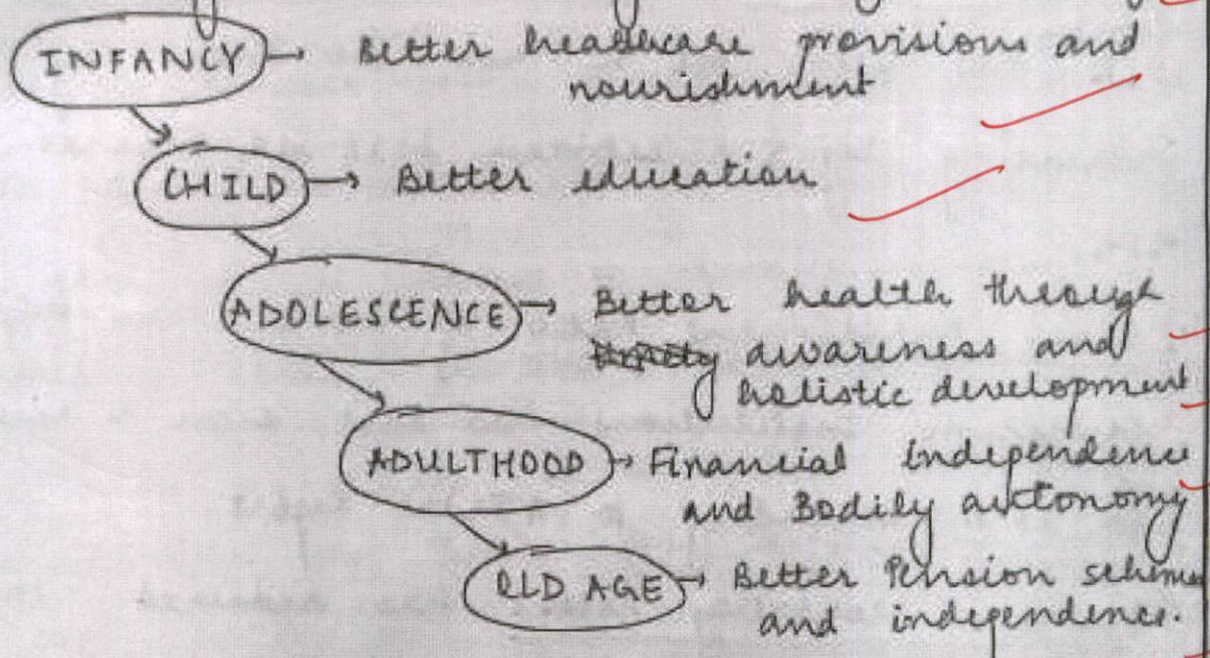 INFANCY → Better healthcare provisions and
nourishment
CHILD → Better education
ADOLESCENCE → Better health through
awareness and
holistic development
ADULTHOOD → Financial independence
and Bodily autonomy
OLD AGE → Better Pension schemes
and independence.